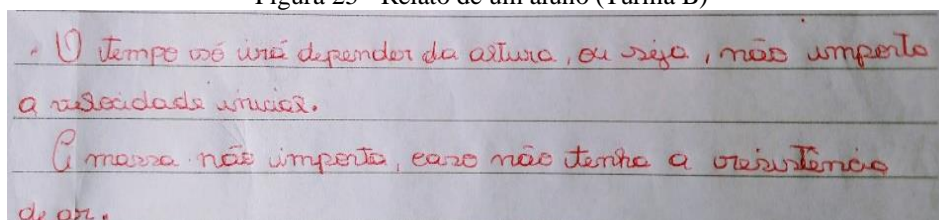 Figura 25 - Relato de um aluno (Turma B)
. O tempo só irá depender da altura, ou seja, não importa
a velocidade inicial.
A massa não importa, caso não tenha a resistência
de ar.